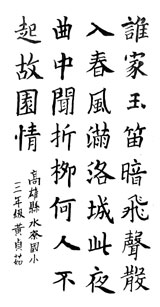 誰家玉笛暗飛聲散
入春風滿洛城此夜
曲中聞折柳何人不
起故園情
高雄縣水寮國小
三年級 黃貞茹